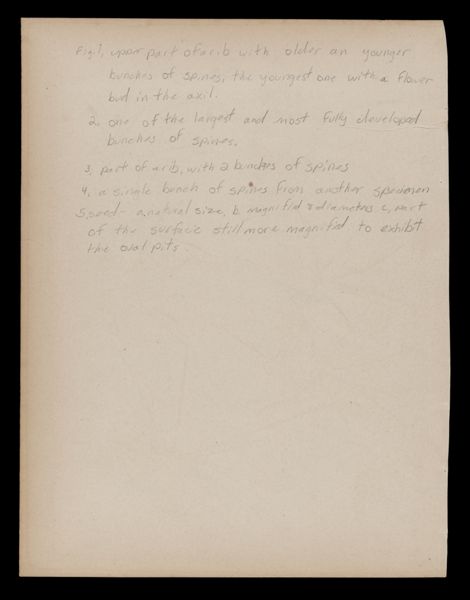 Fig. 1, upper part of a rib with older an younger
bunches of spines, the youngest one with a flower
bud in the axil.
2. one of the largest and most fully developed
bunches of spines.
3, part of a rib, with 2 bunches of spines
4, a single bench of spines from another specimen
5, seed - a, natural size, b magnified 8 diameters c, part
of the surface still more magnified to exhibit
the oval pits.